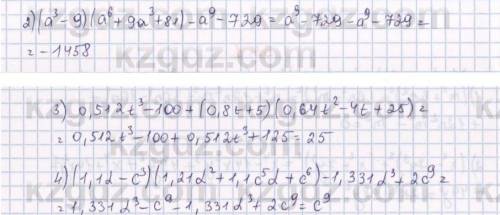 2) (a³-9)(a⁶+9a³+81)-a⁹-729=a⁹-729-a⁹-729=
=-1458
3) 0,512t³-100+(0,8t+5)(0,64t²-4t+25)=
=0,512t³-100+0,512t³+125=25
4) (1,1d-c³)(1,21d²+1,1c⁵d+c⁶)-1,331d³+2c⁹=
=1,331d³-c⁹-1,331d³+2c⁹=c⁹
kzgaz.com